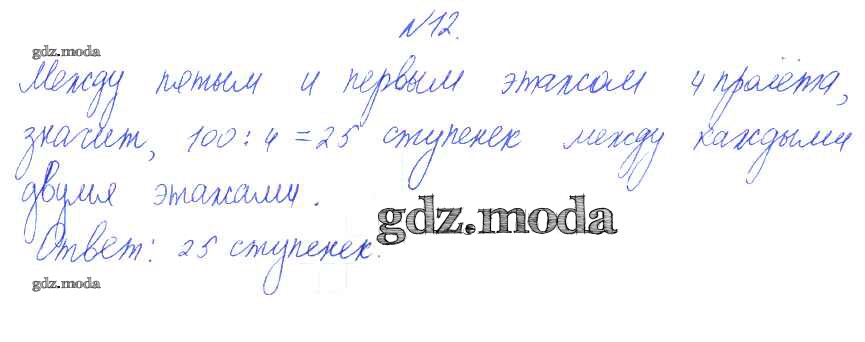 №12.
gdz.moda
Между пятым и первым этажом 4 пролёта,
значит, 100 : 4 = 25 ступенек между каждыми
двумя этажами.
gdz.moda
Ответ: 25 ступенек.
gdz.moda